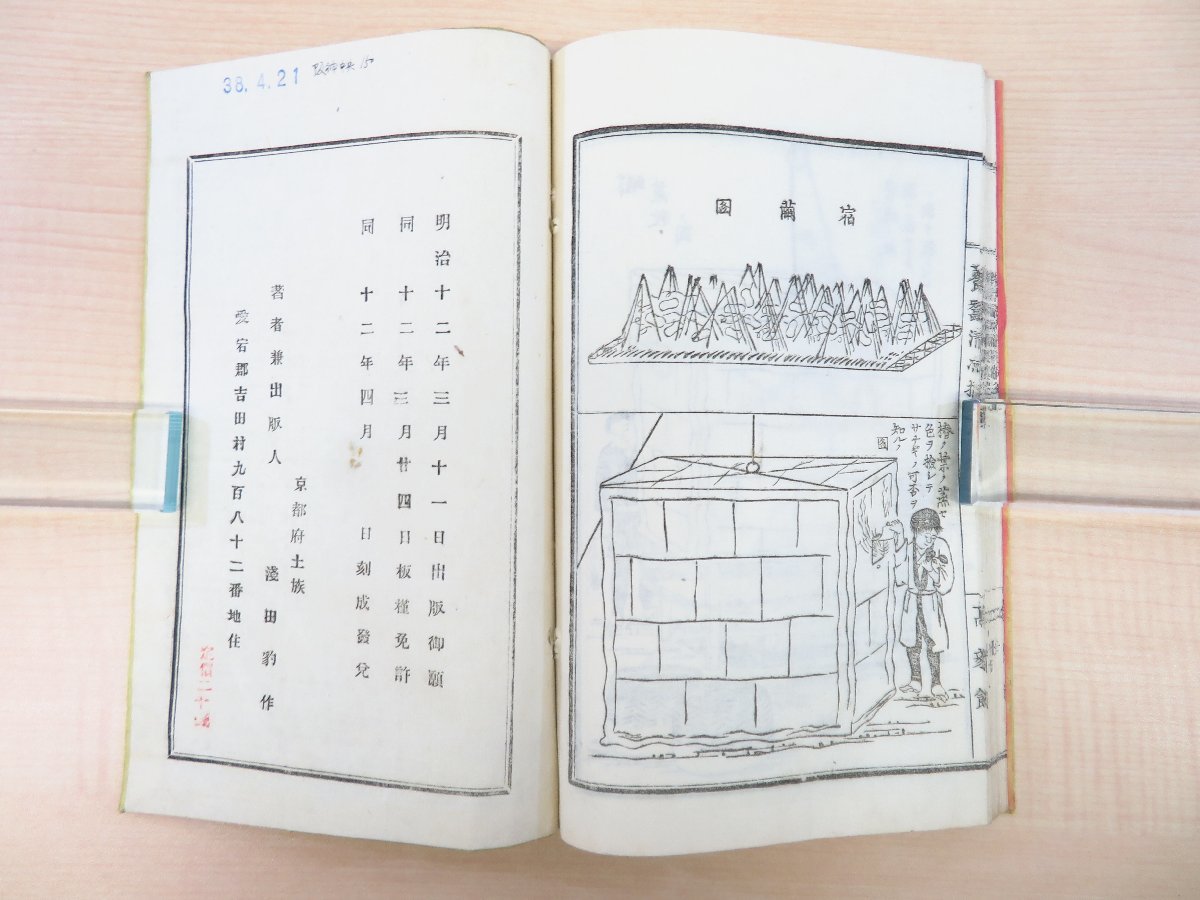 宿繭圖
椿ノ葉ノ蒸セ
色ヲ檢シテ
サナギノ可否ヲ
知ルノ
図
38.4.21
明治十二年三月十一日出版御願
同十二年三月廿四日板權免許
同十二年四月 日刻成發兌
京都府士族
著者兼出版人 淺田豹作
愛宕郡吉田村九百八十二番地住
定價二十錢